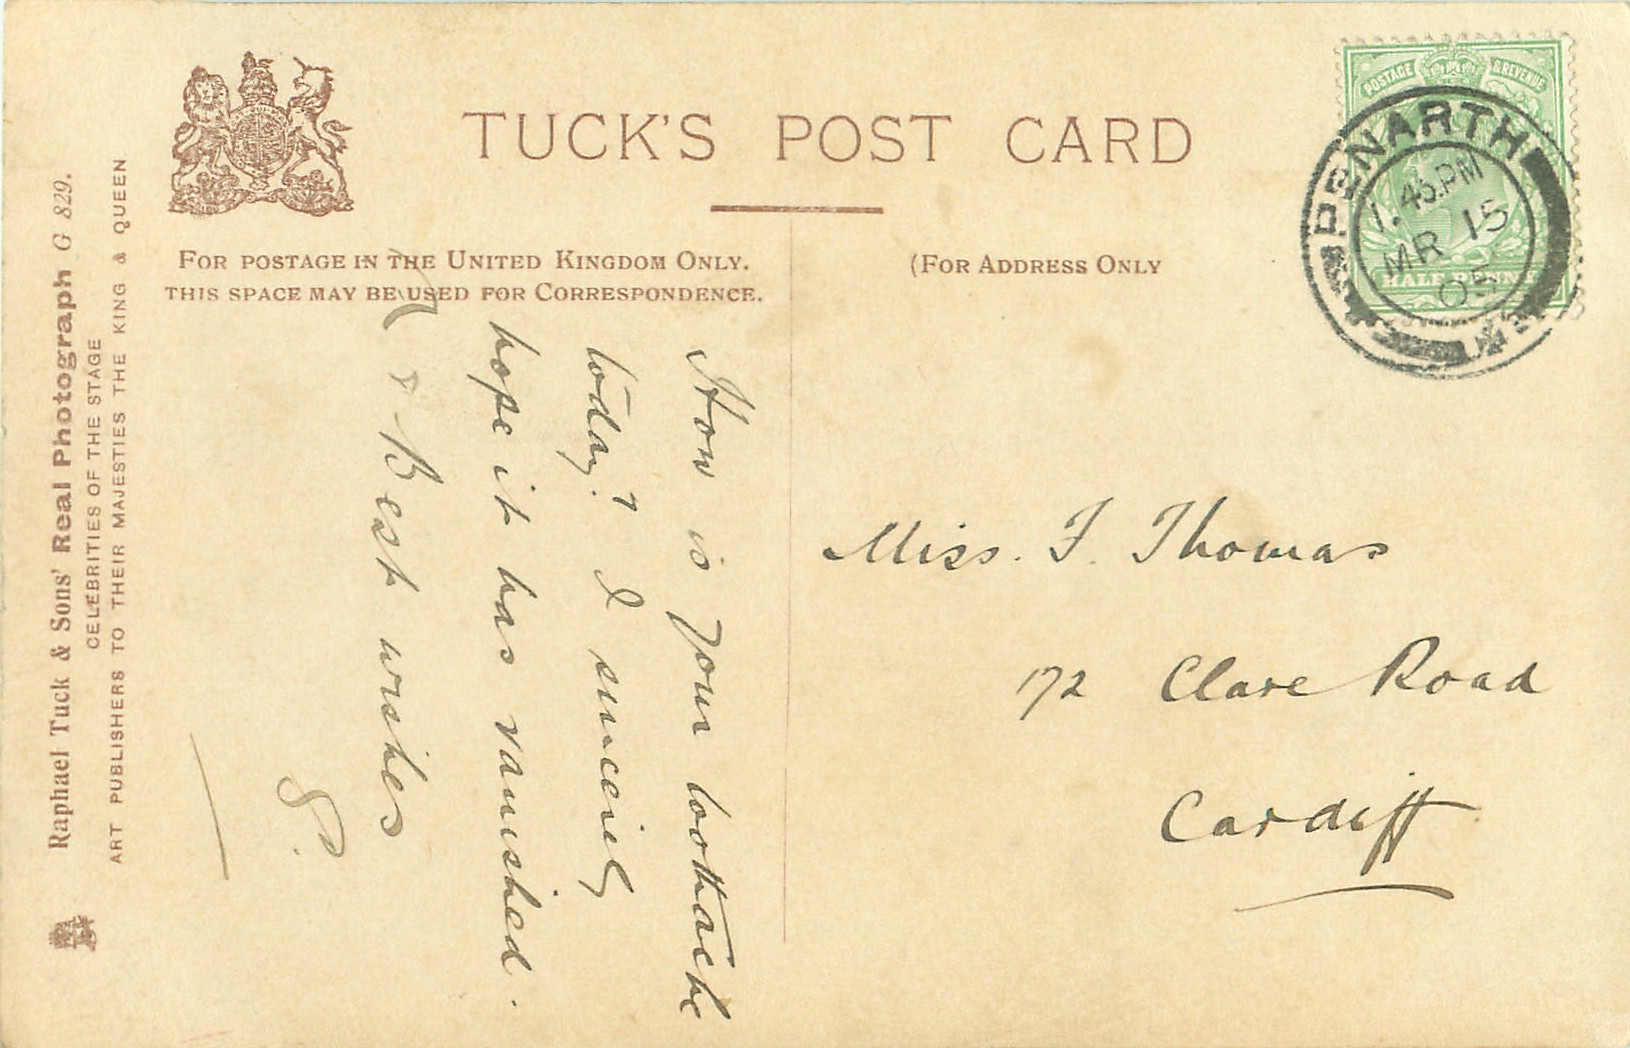 TUCK'S POST CARD
FOR POSTAGE IN THE UNITED KINGDOM ONLY.
THIS SPACE MAY BE USED FOR CORRESPONDENCE.
(FOR ADDRESS ONLY
POSTAGE & REVENUE
HALF PENNY
PENARTH
1.45.PM
MR 15
05
How is your toothache
today? I sincerely
hope it has vanished.
Best wishes
Miss. F. Thomas
172 Clare Road
Cardiff
Raphael Tuck & Sons' Real Photograph G 829.
CELEBRITIES OF THE STAGE
ART PUBLISHERS TO THEIR MAJESTIES THE KING & QUEEN